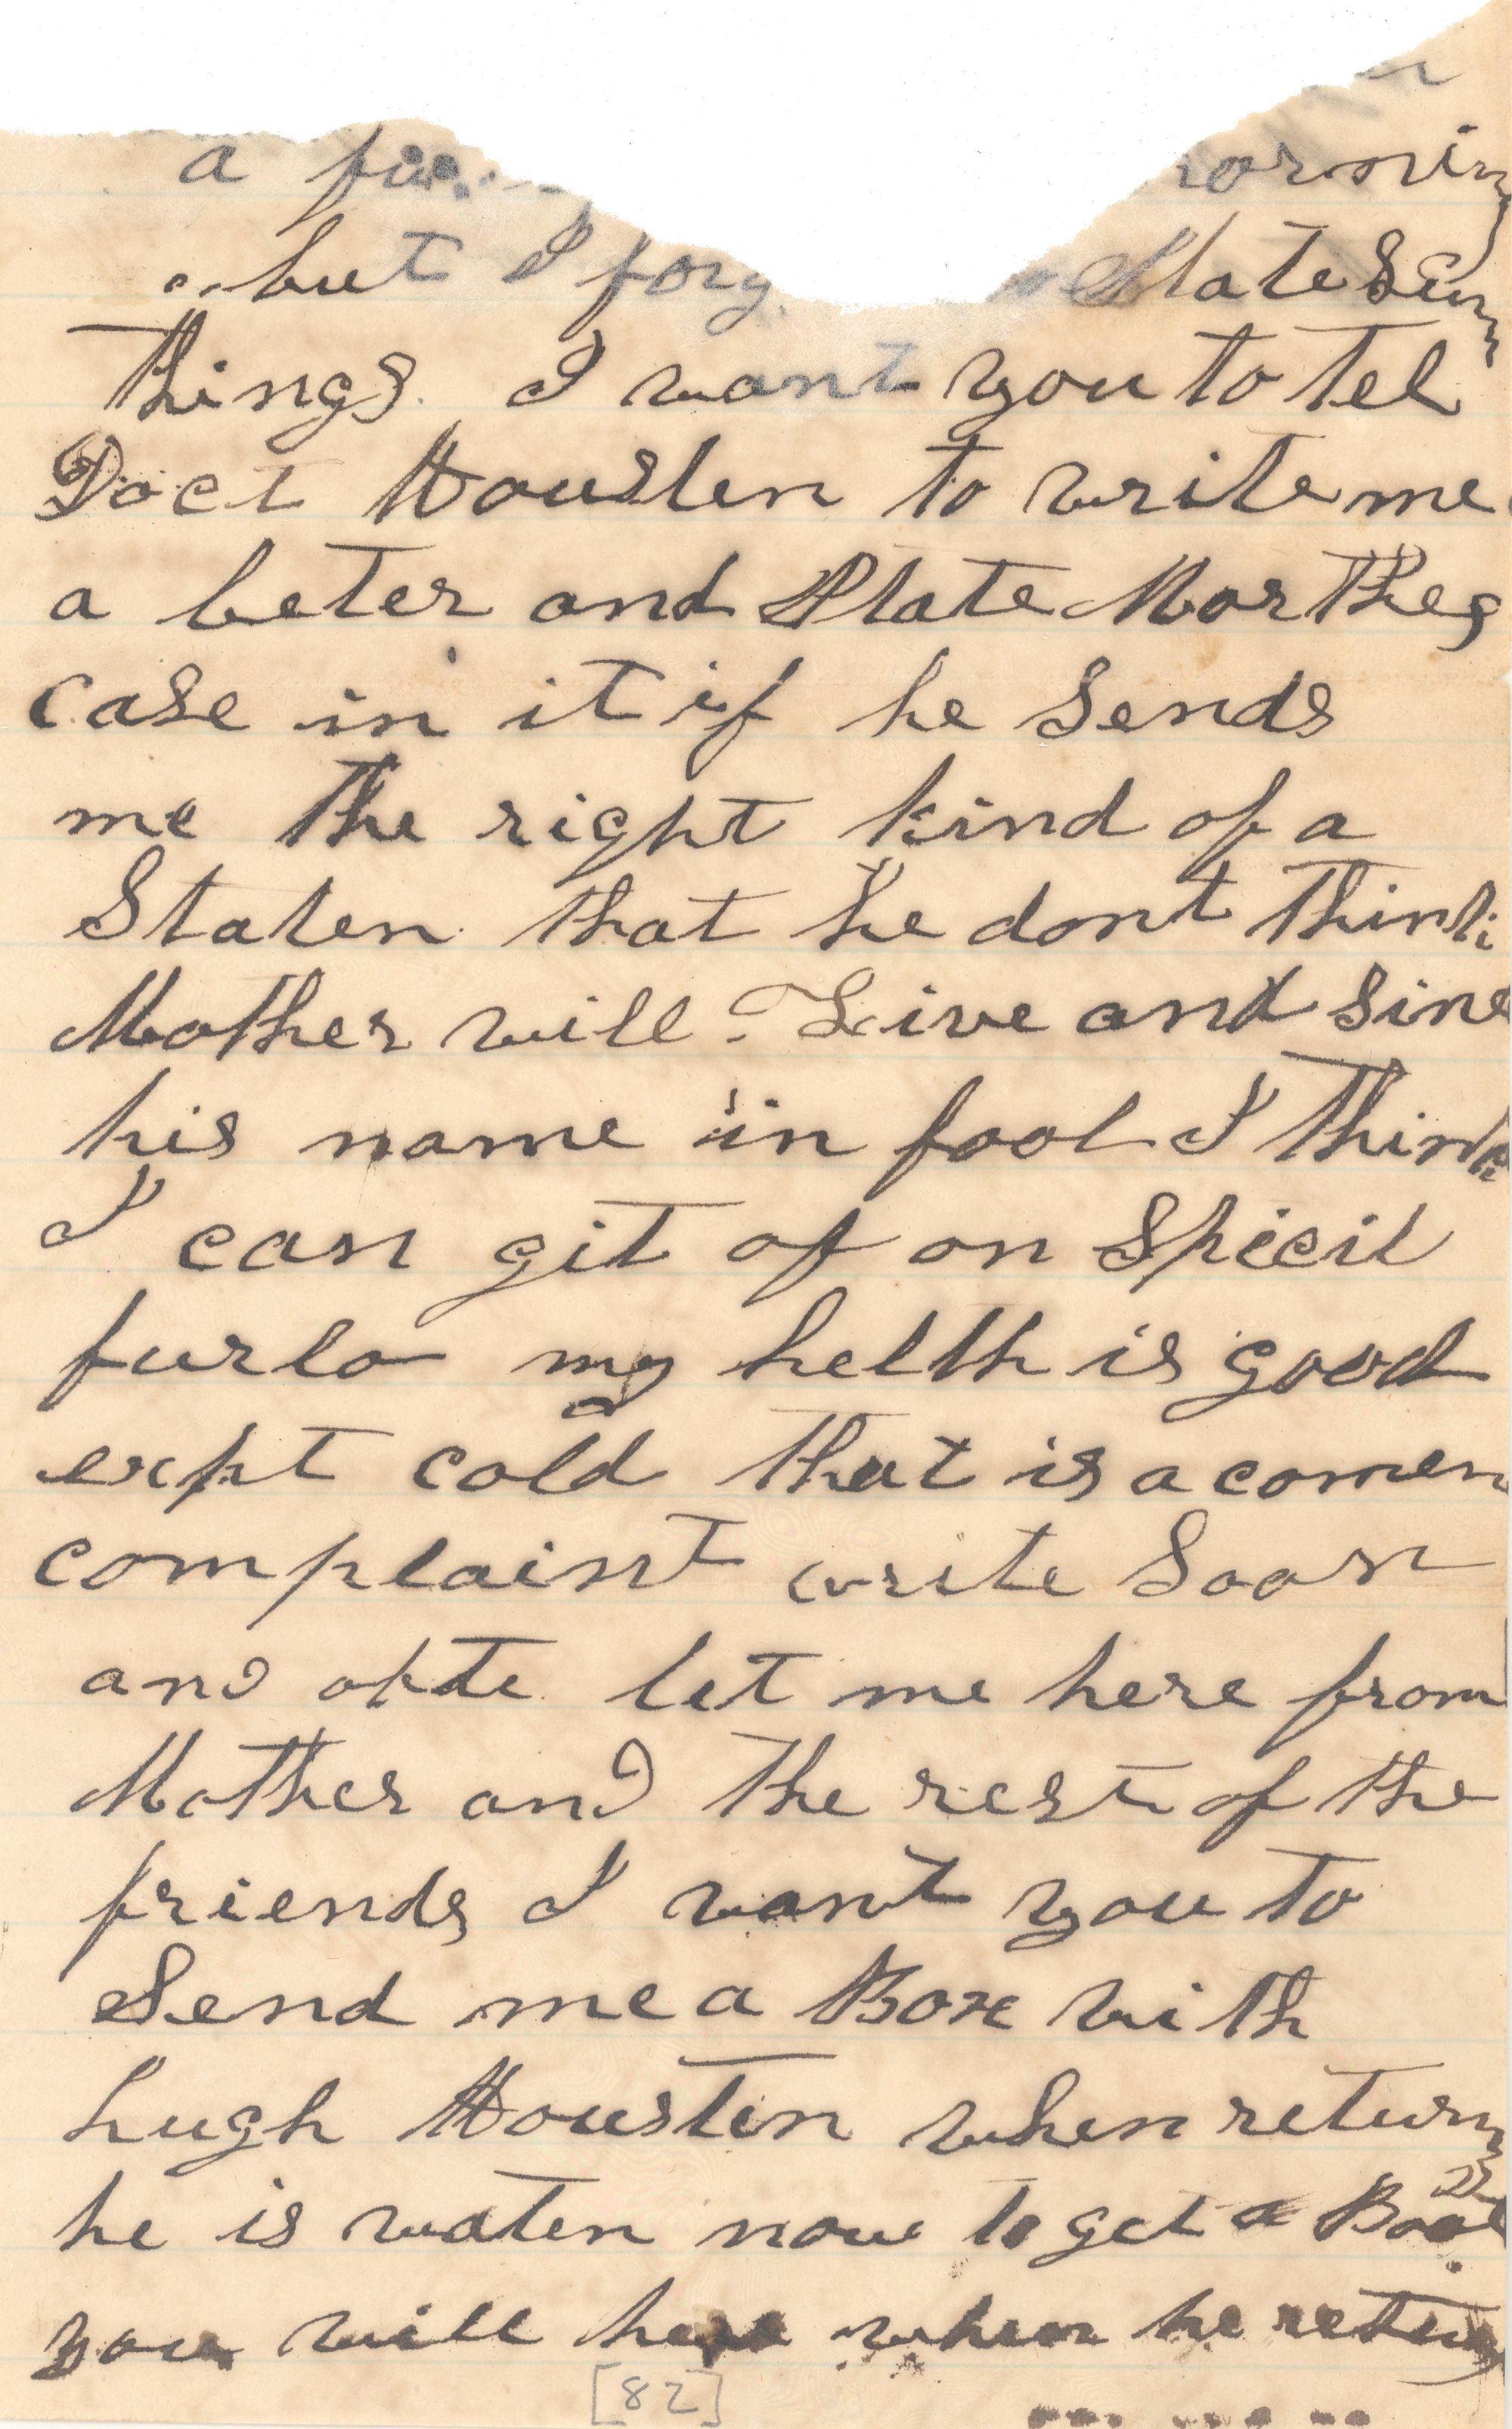 a
but I forg State Sum
things. I want you to tel
Doct Housten to write me
a leter and State Mothers
case in it if he Sends
me the right kind of a
Staten that he dont think
Mother will Live and Sine
his name in fool I think
I can git of on Speceil
furlo my helth is good
exept cold that is a comen
complaint write Soon
and ofte let me here from
Mother and the rest of the
friends I want you to
Send me a Box with
hugh Housten when return
he is waten now to get a
you will here when he return
[82]